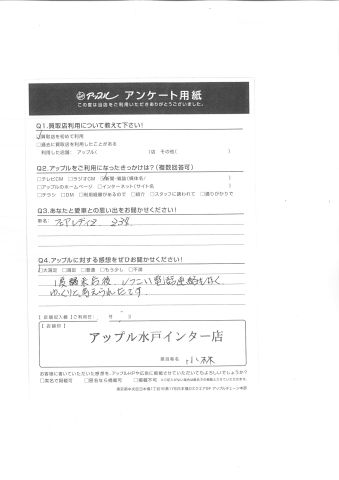 アップル アンケート用紙
この度は当店をご利用いただきありがとうございました。
Q1.買取店利用について教えて下さい!
□買取店を初めて利用
□過去に買取店を利用したことがある
利用した店舗: アップル( )店 その他( )
Q2.アップルをご利用になったきっかけは?(複数回答可)
□テレビCM □ラジオCM □新聞・雑誌(媒体名/ )
□アップルのホームページ □インターネット(サイト名 )
□チラシ □DM □利用経験があるので □紹介 □スタッフに誘われて □通りがかりで
Q3.あなたと愛車との思い出をお聞かせください!
車名:
フェアレディZ Z33
Q4.アップルに対する感想をぜひお聞かせください!
□大満足 □満足 □普通 □もう少し □不満
1度見積り後、しつこい電話連絡もなく
ゆっくりと考えられたです。
【店舗記入欄】【ご利用日: 月 日】
【店舗印】
アップル水戸インター店
担当者名 小林
お客様に書いていただいた感想を、アップルHPや広告に掲載させていただいてもよろしいでしょうか?
□実名で掲載可 □匿名なら掲載可 □掲載不可